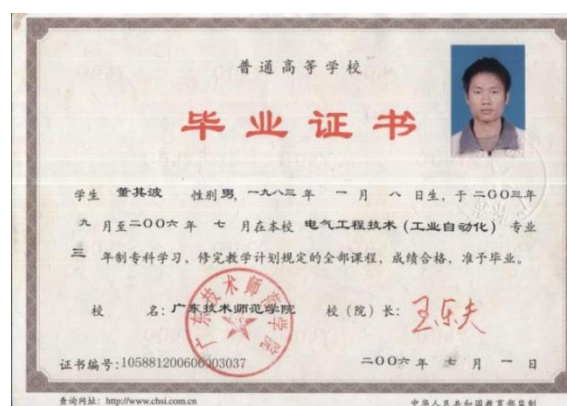 普通高等学校
毕业证书
学生 董其波 性别 男, 一九八三 年 一 月 八 日生, 于 二〇〇三年
九 月至二〇〇六 年 七 月在本校 电气工程技术（工业自动化） 专业
三 年制专科学习, 修完教学计划规定的全部课程, 成绩合格, 准予毕业。
广东技术师范学院
校 名: 广东技术师范学院 校（院）长: 王乐夫
证书编号: 105881200606003037 二〇〇六 年 七 月 一 日
查询网址: http://www.chsi.com.cn 中华人民共和国教育部监制